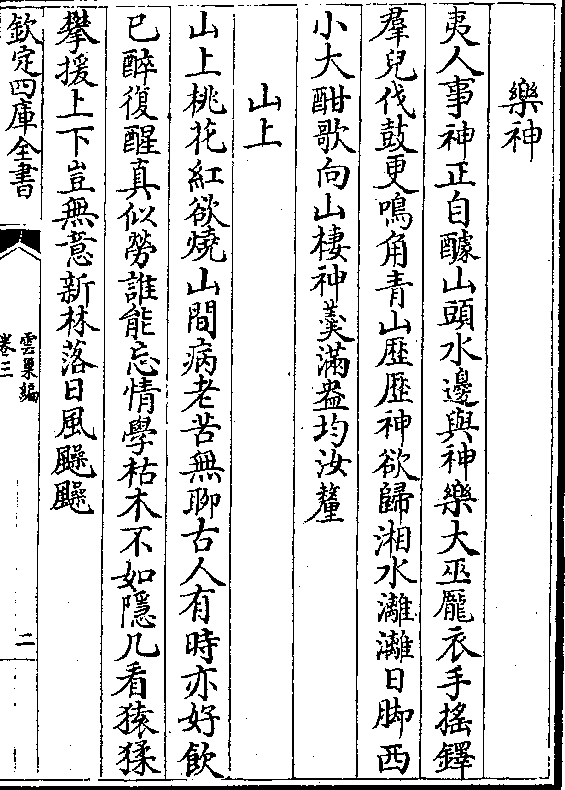 樂神
夷人事神正自醵山頭水邊與神樂大巫厖衣手搖鐸
羣兒伐鼓更鳴角青山歴歴神欲歸湘水灕灕日脚西
小大酣歌向山棲神羹滿盎均汝釐
山上
山上桃花紅欲燒山間病老苦無聊古人有時亦好飲
已醉復醒真似勞誰能忘情學枯木不如隠几看猿猱
攀援上下豈無意新林落日風飈飈
欽定四庫全書
雲巢編
卷三
二